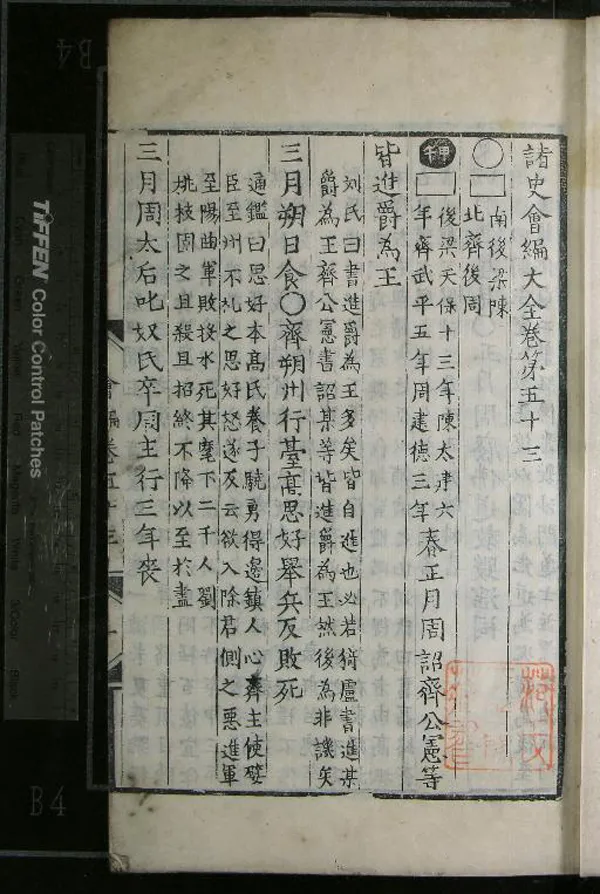 諸史會編大全卷第五十三
南後梁陳
北齊後周
甲午
後梁天保十三年陳太建六
年齊武平五年周建德三年
春正月周詔齊公憲等
皆進爵為王
刘氏曰書進爵為王多矣皆自進也必若猗盧書進某
爵為王齊公憲書詔某等皆進爵為王然後為非譏矣
三月朔日食〇齊朔州行臺高思好舉兵反敗死
通鑑曰思好本高氏養子驍勇得邊鎮人心齊主使嬖
臣至州不礼之思好怒遂反云欲入除君側之惡進軍
至陽曲軍敗投水死其麾下二千人劉
桃枝圍之且殺且招終不降以至於盡
三月周太后叱奴氏卒周主行三年喪
會編卷五十三
TIFFEN Color Control Patches
B4
B4